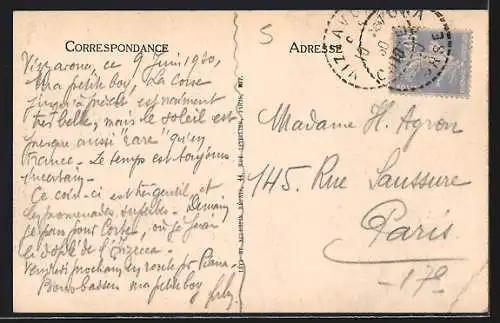 CORRESPONDANCE
ADRESSE
5
VIZZAVONA
CORSE
Vizzavona, ce 9 Juin 1930,
Ma petite boy, La Corse
jusqu'à présent est vraiment
très belle, mais le soleil est
presque aussi "rare" qu'en
France - Le temps est toujours
incertain -
Ce coin-ci est très gentil, et
les promenades superbes - Demain
je pars pour Corte, où je ferai
Vendredi prochain en route pr Piana -
Bons baisers ma petite boy
Madame H. Agron
145. Rue Saussure
Paris
- 17e -